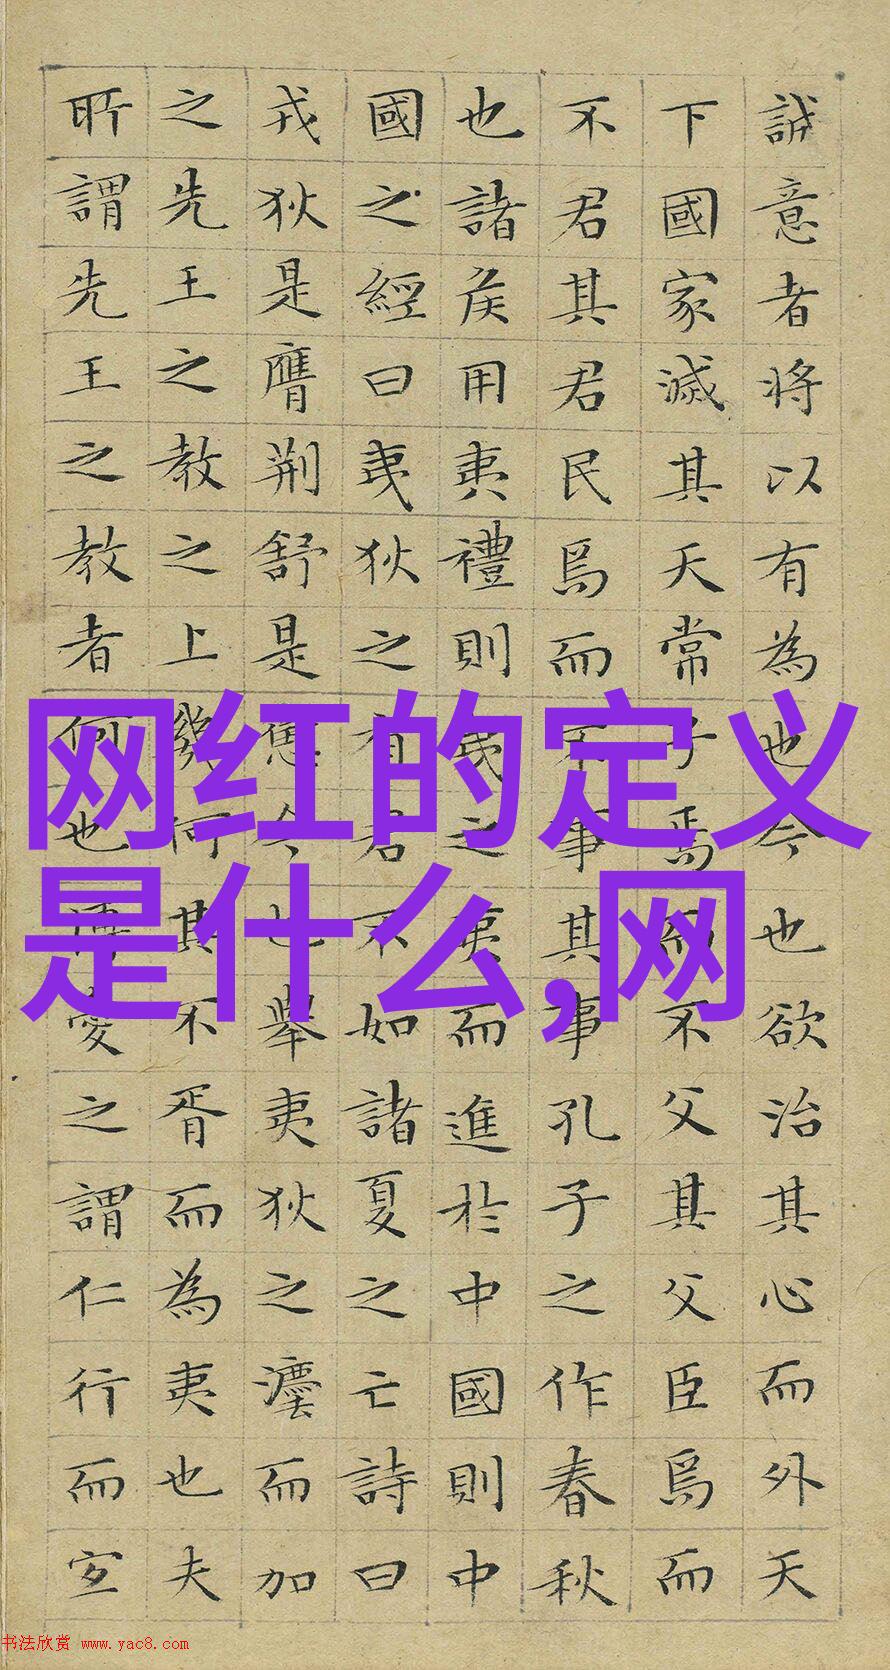 誠意者将以有為也今也欲治其心而外天
下國家滅其天常子焉而不父其父臣焉而
不君其君民焉而不事其事孔子之作春秋
也諸侯用夷禮則夷之夷而進於中國則中
國之經曰夷狄之有君不如諸夏之亡詩曰
戎狄是膺荆舒是懲今也舉夷狄之灋而加
之先王之教之上幾何其不胥而為夷也夫
所謂先王之教者何也博愛之謂仁行而宜
网红的定义
是什么,网
书法欣赏 www.yac8.com